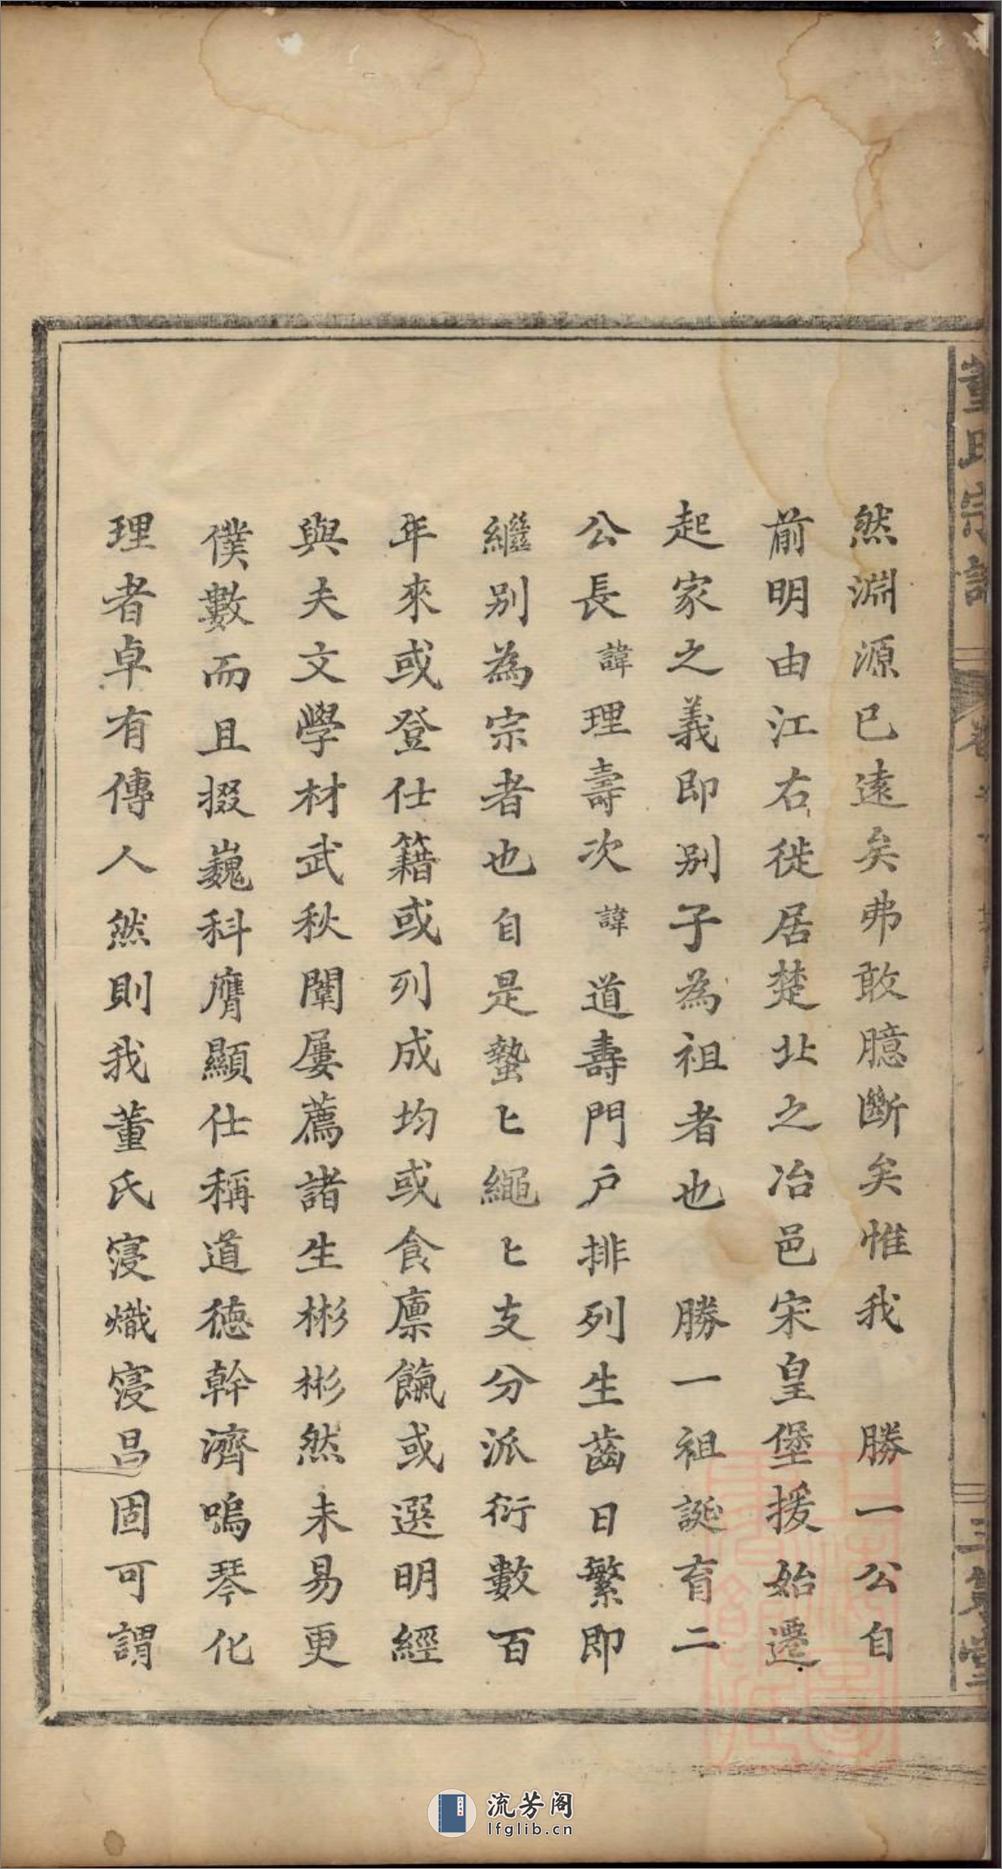 董氏宗譜
然淵源已遠矣弗敢臆斷矣惟我　勝一公自
前明由江右徙居楚北之冶邑宋皇堡援始遷
起家之義即別子為祖者也　勝一祖誕育二
公長諱理壽次諱道壽門戶排列生齒日繁即
繼別為宗者也自是蟄〻繩〻支分派衍數百
年來或登仕籍或列成均或食廪餼或選明經
與夫文學材武秋闈屢薦諸生彬彬然未易更
僕數而且掇巍科膺顯仕稱道德幹濟嗚琴化
理者卓有傳人然則我董氏寖熾寖昌固可謂
流芳阁
lfglib.cn